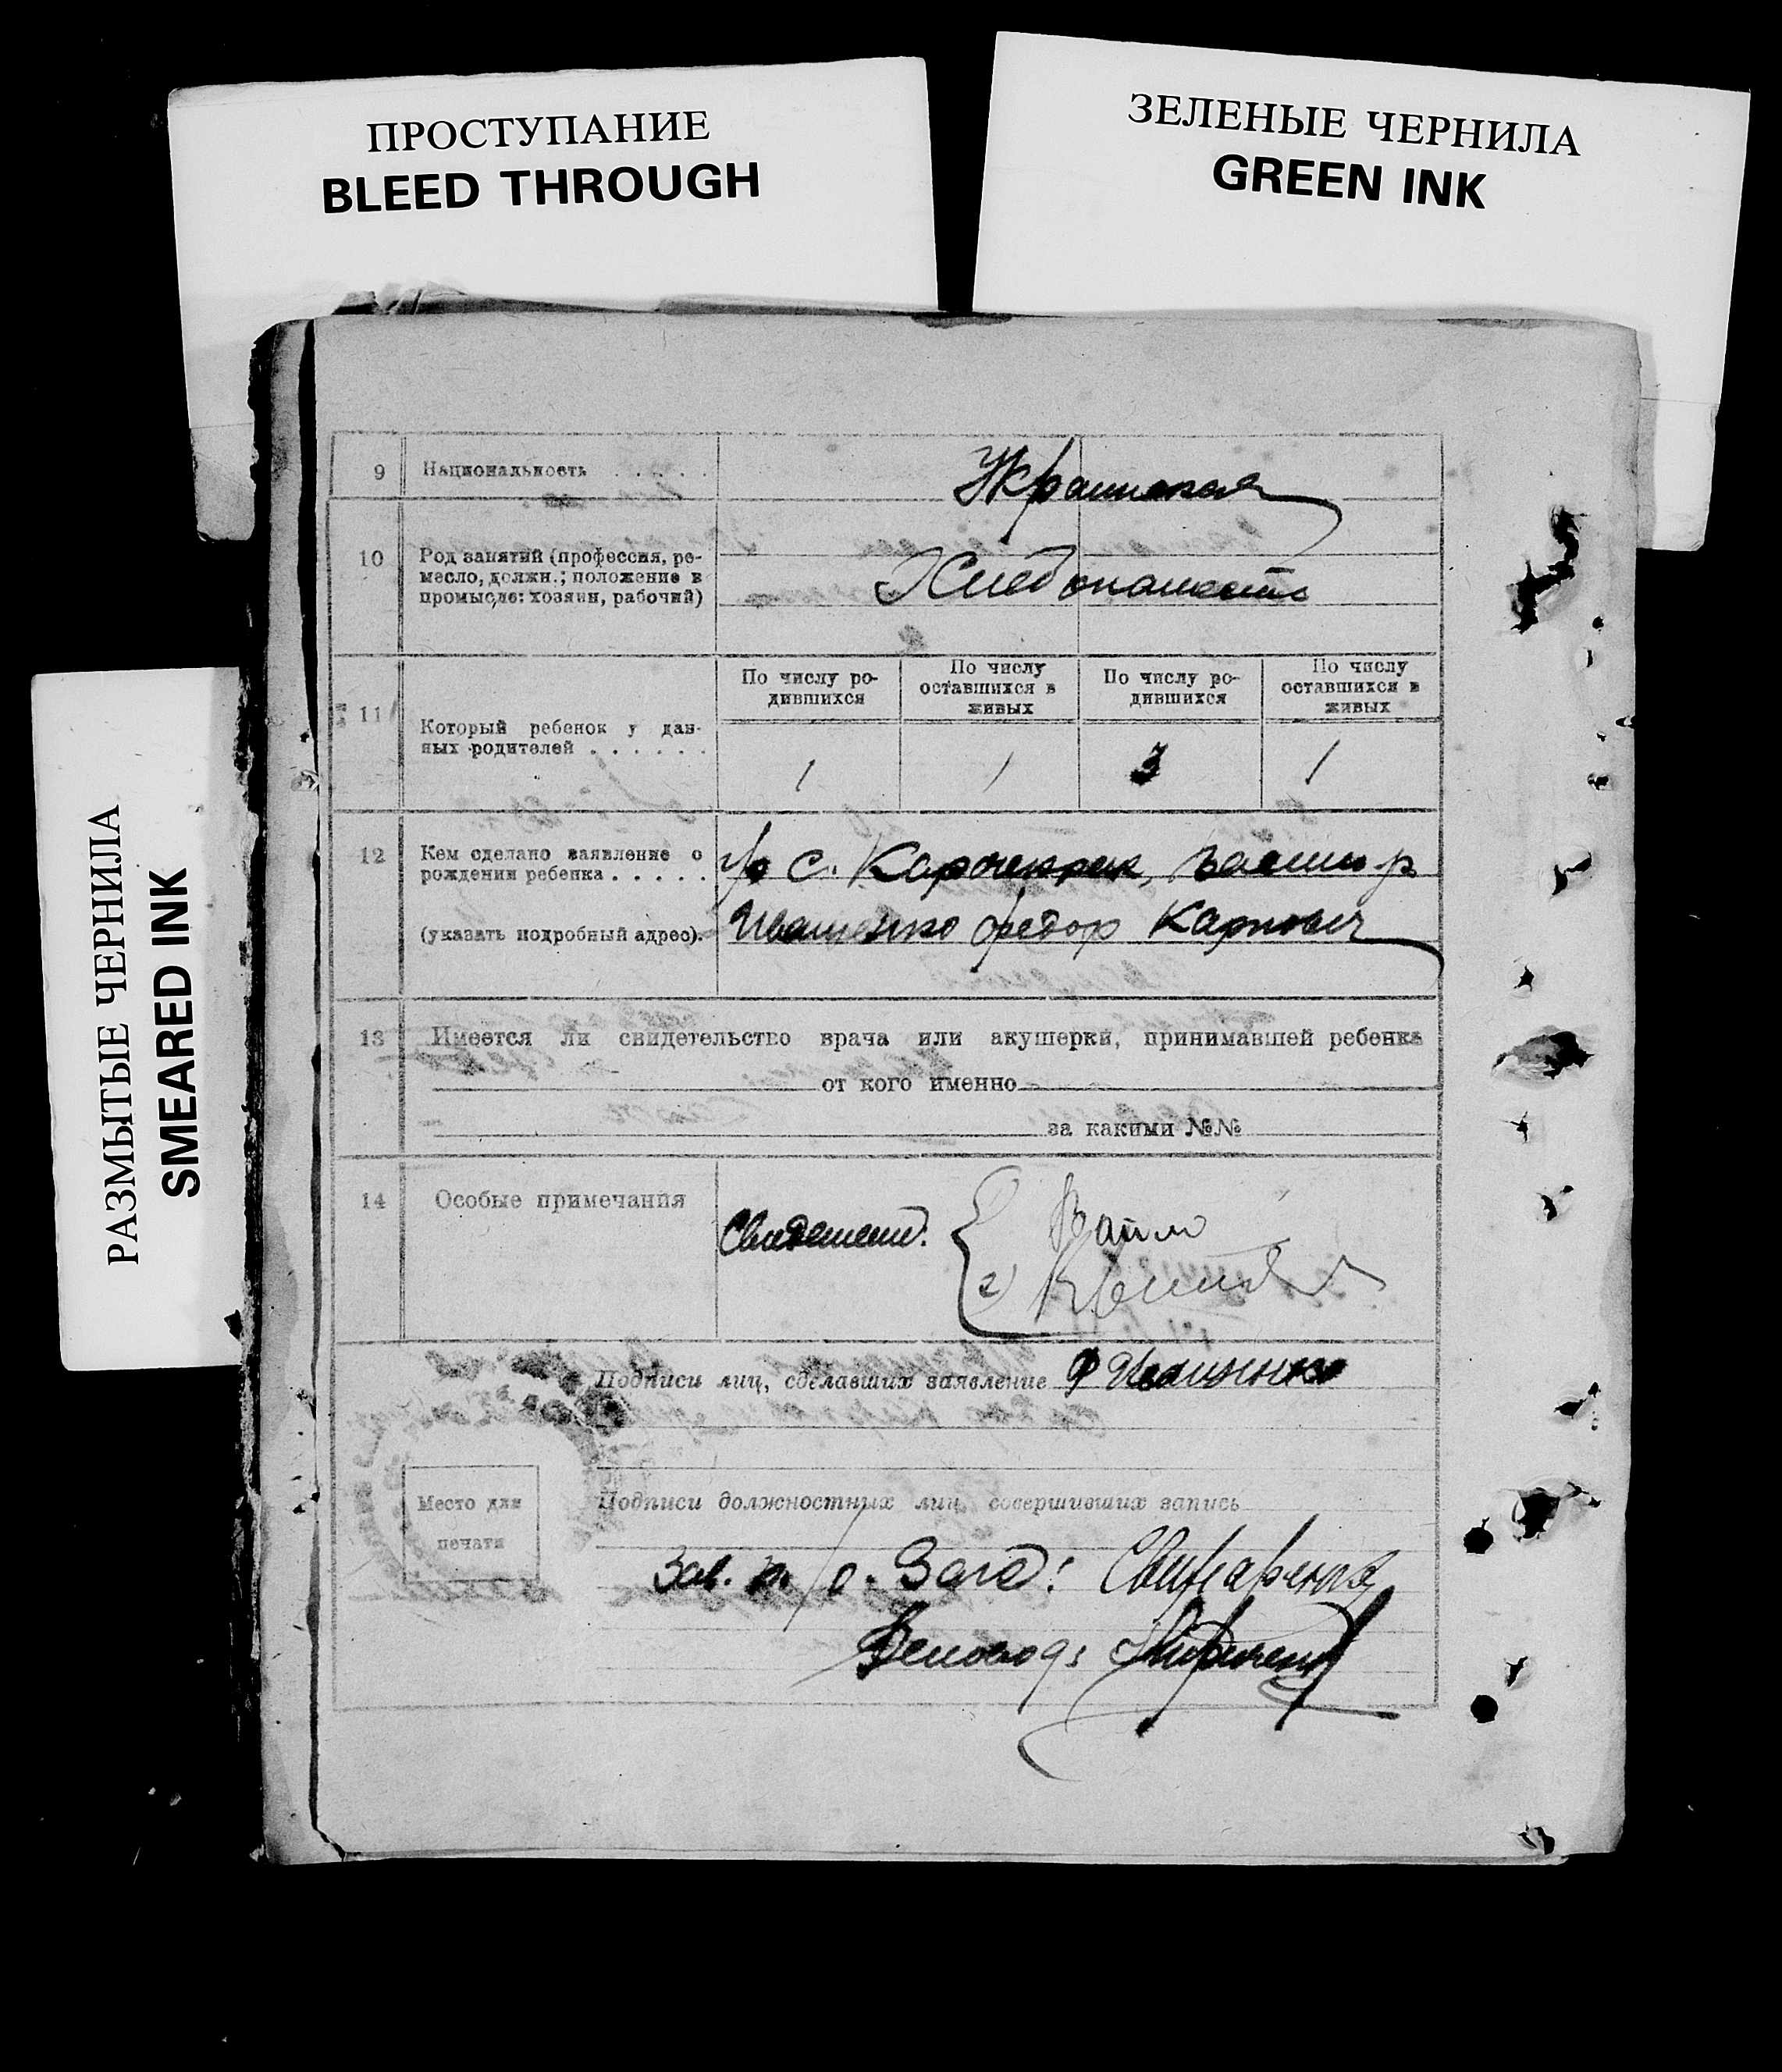 ПРОСТУПАНИЕ
BLEED THROUGH
ЗЕЛЕНЫЕ ЧЕРНИЛА
GREEN INK
РАЗМЫТЫЕ ЧЕРНИЛА
SMEARED INK
9 Национальность . . . . . Украинская
10 Род занятий (профессия, ре-
месло, должн.; положение в
промысле: хозяин, рабочий)
Хлебопашест
11 Который ребенок у дан-
ных родителей . . . . . .
По числу ро-
дившихся
По числу
оставшихся в
живых
По числу ро-
дившихся
По числу
оставшихся в
живых
1 1 3 1
12 Кем сделано заявление о
рождении ребенка . . . . .
(указать подробный адрес).
гр с.
Иващенко Федор Карпович
13 Имеется ли свидетельство врача или акушерки, принимавшей ребенка
от кого именно
за какими №№
14 Особые примечания
Свидетели.
2)
Подписи лиц, сделавших заявление Ф Иващенко
Место для
печати
Подписи должностных лиц, совершивших запись
Зав. п/о. Загс:
Деловод: